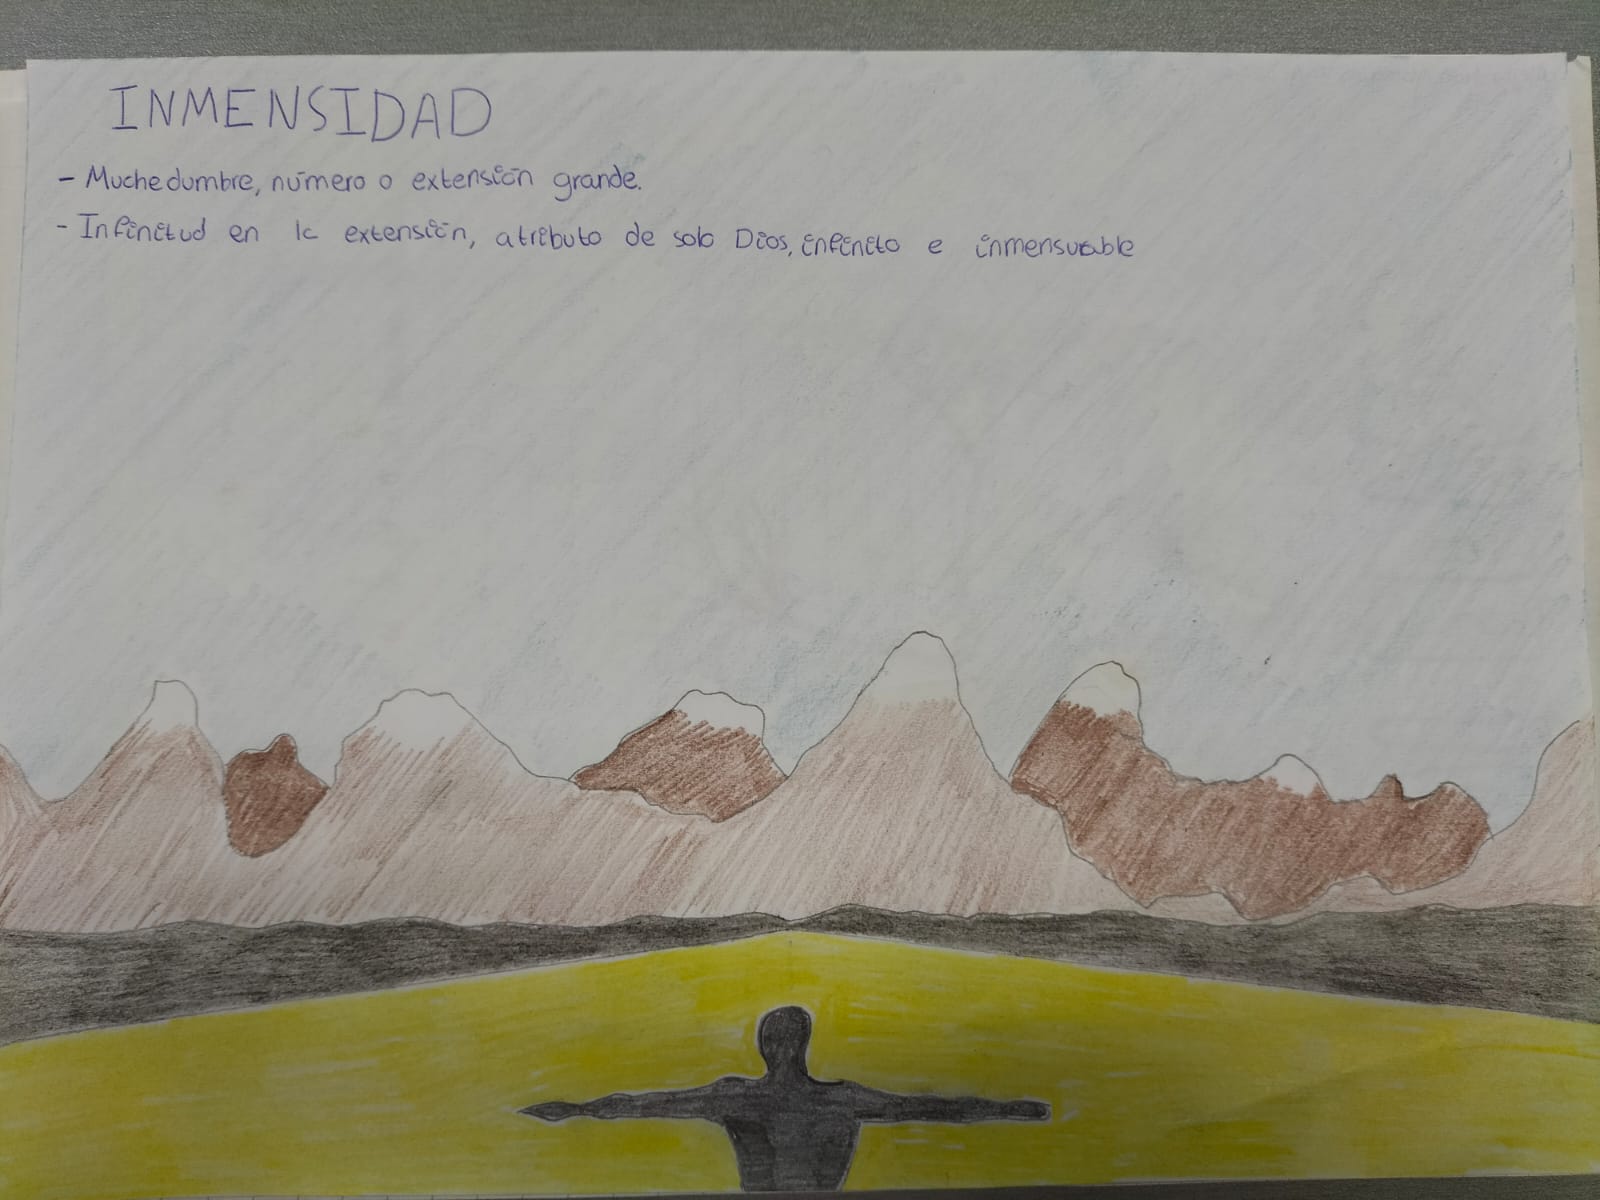 INMENSIDAD
- Muchedumbre, número o extensión grande.
- Infinitud en la extensión, atributo de solo Dios, infinito e inmensurable